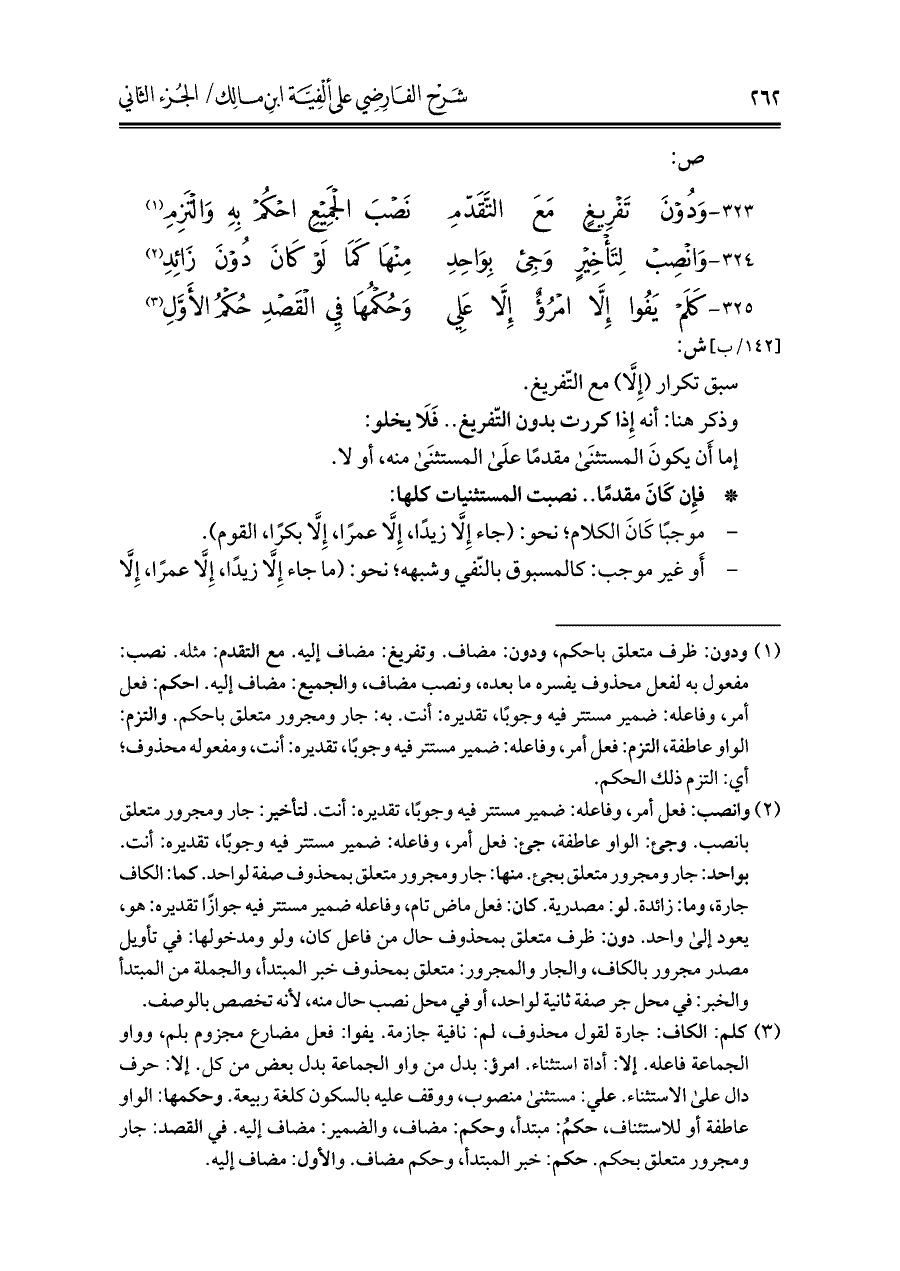 ٢٦٢ شَرْح الفَارِضِي عَلى ألْفِيَّة ابنِ مَالِك/ الجُزء الثاني
ص:
٣٢٣-وَدُوْنَ تَفْرِيغٍ مَعَ التَّقَدّمِ نَصْبَ الْجَمِيْعِ احْكُمْ بِهِ وَالْتَزِمِ(١)
٣٢٤-وَانْصِبْ لِتَأْخِيْرٍ وَجِئْ بِوَاحِدِ مِنْهَا كَمَا لَوْ كَانَ دُوْنَ زَائِدِ(٢)
٣٢٥-كَلَمْ يَفُوا إِلَّا امْرُؤٌ إِلَّا عَلِي وَحُكْمُهَا فِي الْقَصْدِ حُكْمُ الأَوَّلِ(٣)
[١٤٢/ ب] ش:
سبق تكرار (إِلَّا) مع التّفريغ.
وذكر هنا: أنه إِذا كررت بدون التّفريغ.. فَلَا يخلو:
إما أَن يكونَ المستثنَىٰ مقدمًا علَىٰ المستثنَىٰ منه، أو لا.
* فإِن كَانَ مقدمًا.. نصبت المستثنيات كلها:
– موجبًا كَانَ الكلام؛ نحو: (جاء إِلَّا زيدًا، إِلَّا عمرًا، إِلَّا بكرًا، القوم).
– أَو غير موجب: كالمسبوق بالنّفي وشبهه؛ نحو: (ما جاء إِلَّا زيدًا، إِلَّا عمرًا، إِلَّا
(١) ودون: ظرف متعلق باحكم، ودون: مضاف. وتفريغ: مضاف إليه. مع التقدم: مثله. نصب:
مفعول به لفعل محذوف يفسره ما بعده، ونصب مضاف، والجميع: مضاف إليه. احكم: فعل
أمر، وفاعله: ضمير مستتر فيه وجوبًا، تقديره: أنت. به: جار ومجرور متعلق باحكم. والتزم:
الواو عاطفة، التزم: فعل أمر، وفاعله: ضمير مستتر فيه وجوبًا، تقديره: أنت، ومفعوله محذوف؛
أي: التزم ذلك الحكم.
(٢) وانصب: فعل أمر، وفاعله: ضمير مستتر فيه وجوبًا، تقديره: أنت. لتأخير: جار ومجرور متعلق
بانصب. وجئ: الواو عاطفة، جئ: فعل أمر، وفاعله: ضمير مستتر فيه وجوبًا، تقديره: أنت.
بواحد: جار ومجرور متعلق بجئ. منها: جار ومجرور متعلق بمحذوف صفة لواحد. كما: الكاف
جارة، وما: زائدة. لو: مصدرية. كان: فعل ماض تام، وفاعله ضمير مستتر فيه جوازًا تقديره: هو،
يعود إلىٰ واحد. دون: ظرف متعلق بمحذوف حال من فاعل كان، ولو ومدخولها: في تأويل
مصدر مجرور بالكاف، والجار والمجرور: متعلق بمحذوف خبر المبتدأ، والجملة من المبتدأ
والخبر: في محل جر صفة ثانية لواحد، أو في محل نصب حال منه، لأنه تخصص بالوصف.
(٣) كلم: الكاف: جارة لقول محذوف، لم: نافية جازمة. يفوا: فعل مضارع مجزوم بلم، وواو
الجماعة فاعله. إلا: أداة استثناء. امرؤ: بدل من واو الجماعة بدل بعض من كل. إلا: حرف
دال علىٰ الاستثناء. علي: مستثنىٰ منصوب، ووقف عليه بالسكون كلغة ربيعة. وحكمها: الواو
عاطفة أو للاستئناف، حكمُ: مبتدأ، وحكم: مضاف، والضمير: مضاف إليه. في القصد: جار
ومجرور متعلق بحكم. حكم: خبر المبتدأ، وحكم مضاف. والأول: مضاف إليه.